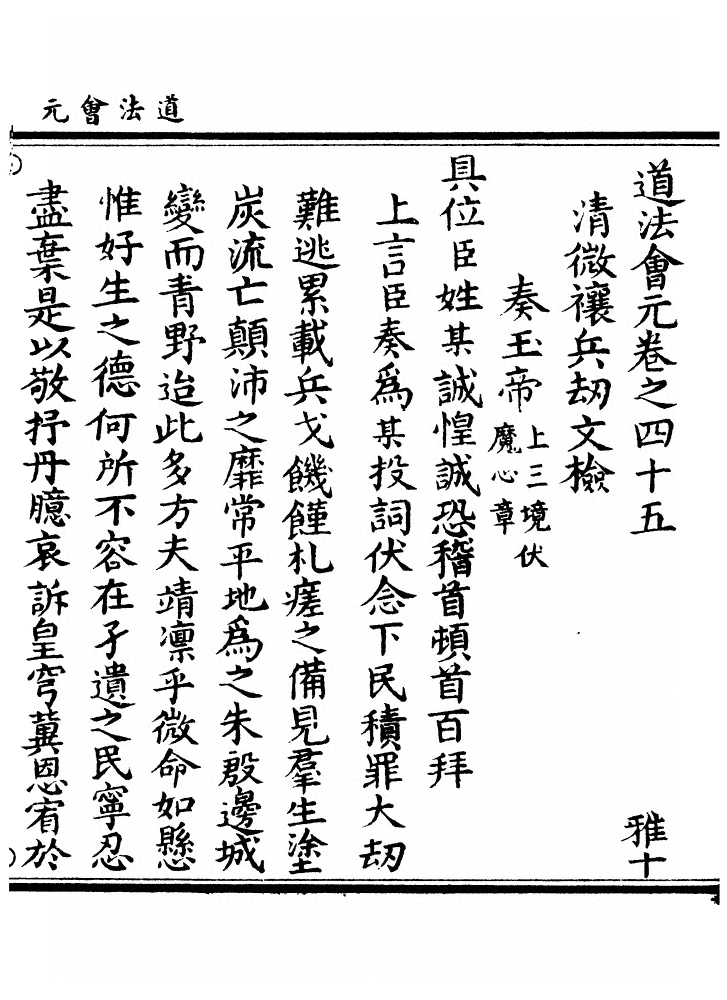 道法會元
道法會元卷之四十五
雅十
清微禳兵刧文檢
奏玉帝
上三境伏
魔心章
具位臣姓某誠惶誠恐稽首頓首百拜
上言臣奏爲某投詞伏念下民積罪大刧
難逃累載兵戈饑饉札瘥之備見羣生塗
炭流亡顛沛之靡常平地爲之朱殷邊城
變而青野迨此多方夫靖凛乎微命如懸
惟好生之德何所不容在孑遺之民寧忍
盡棄是以敬抒丹臆哀訴皇穹冀恩宥於